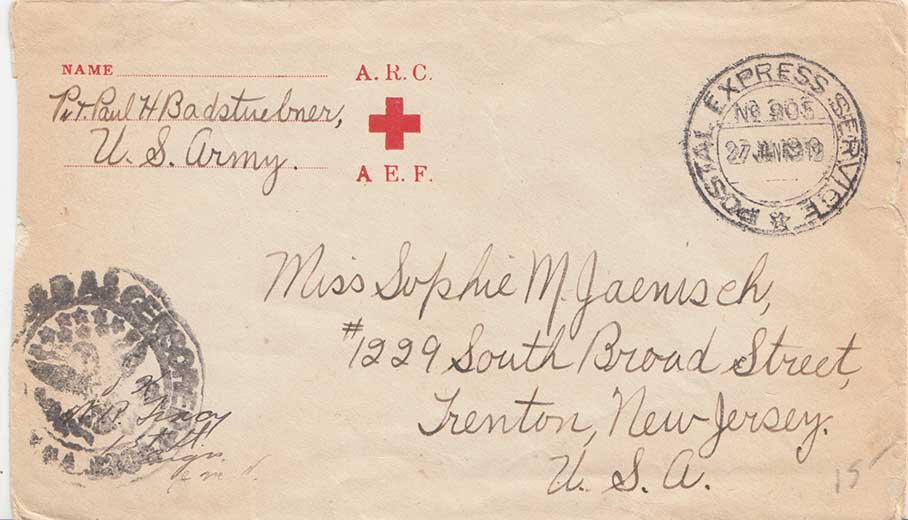 NAME
Pvt. Paul H Badstuebner,
U. S. Army.
A. R. C.
A E. F.
POSTAL EXPRESS SERVICE
No 905
27 JAN 1919
Miss Sophie M. Jaenisch,
#1229 South Broad Street,
Trenton, New Jersey.
U. S. A.
O K
Tracy
15